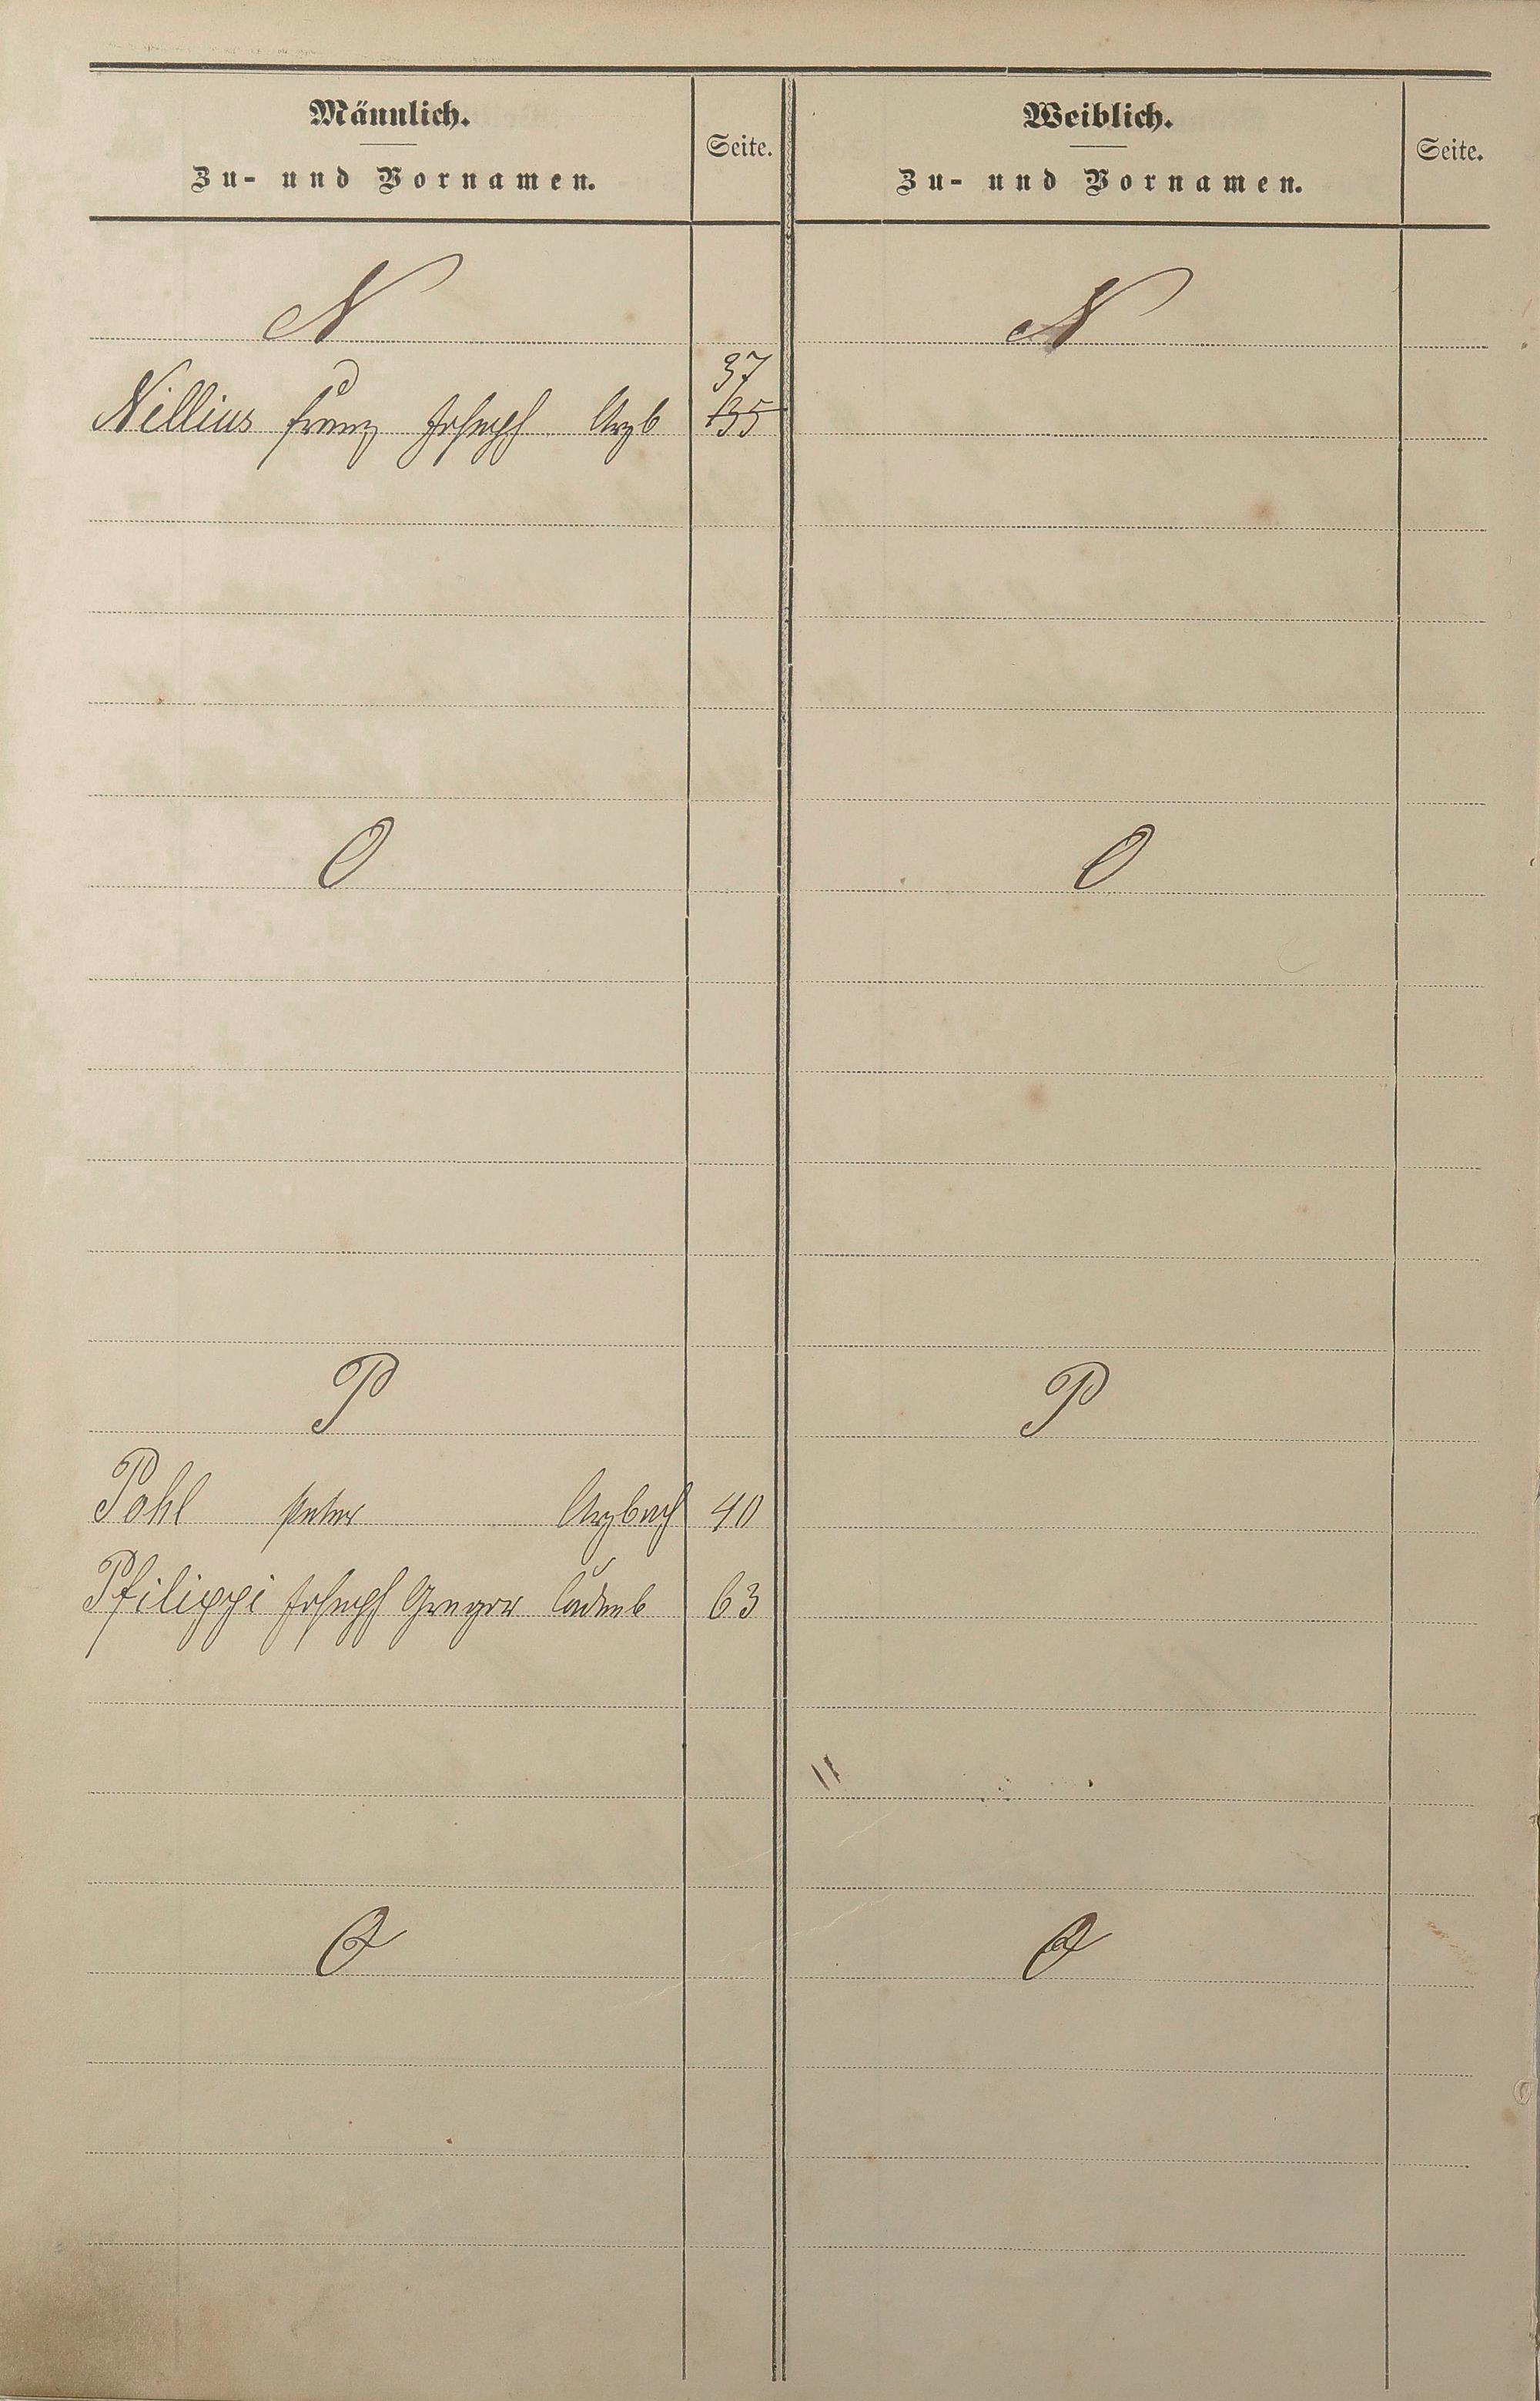 Männlich.
Zu- und Vornamen.
Seite.
Weiblich.
Zu- und Vornamen.
Seite.
N
N
37
Nillius Franz Joseph Arzb 135
O
O
P
P
Pohl Peter Arzbach 40
Philippi Joseph Gregor Cadenb 63
Q
Q